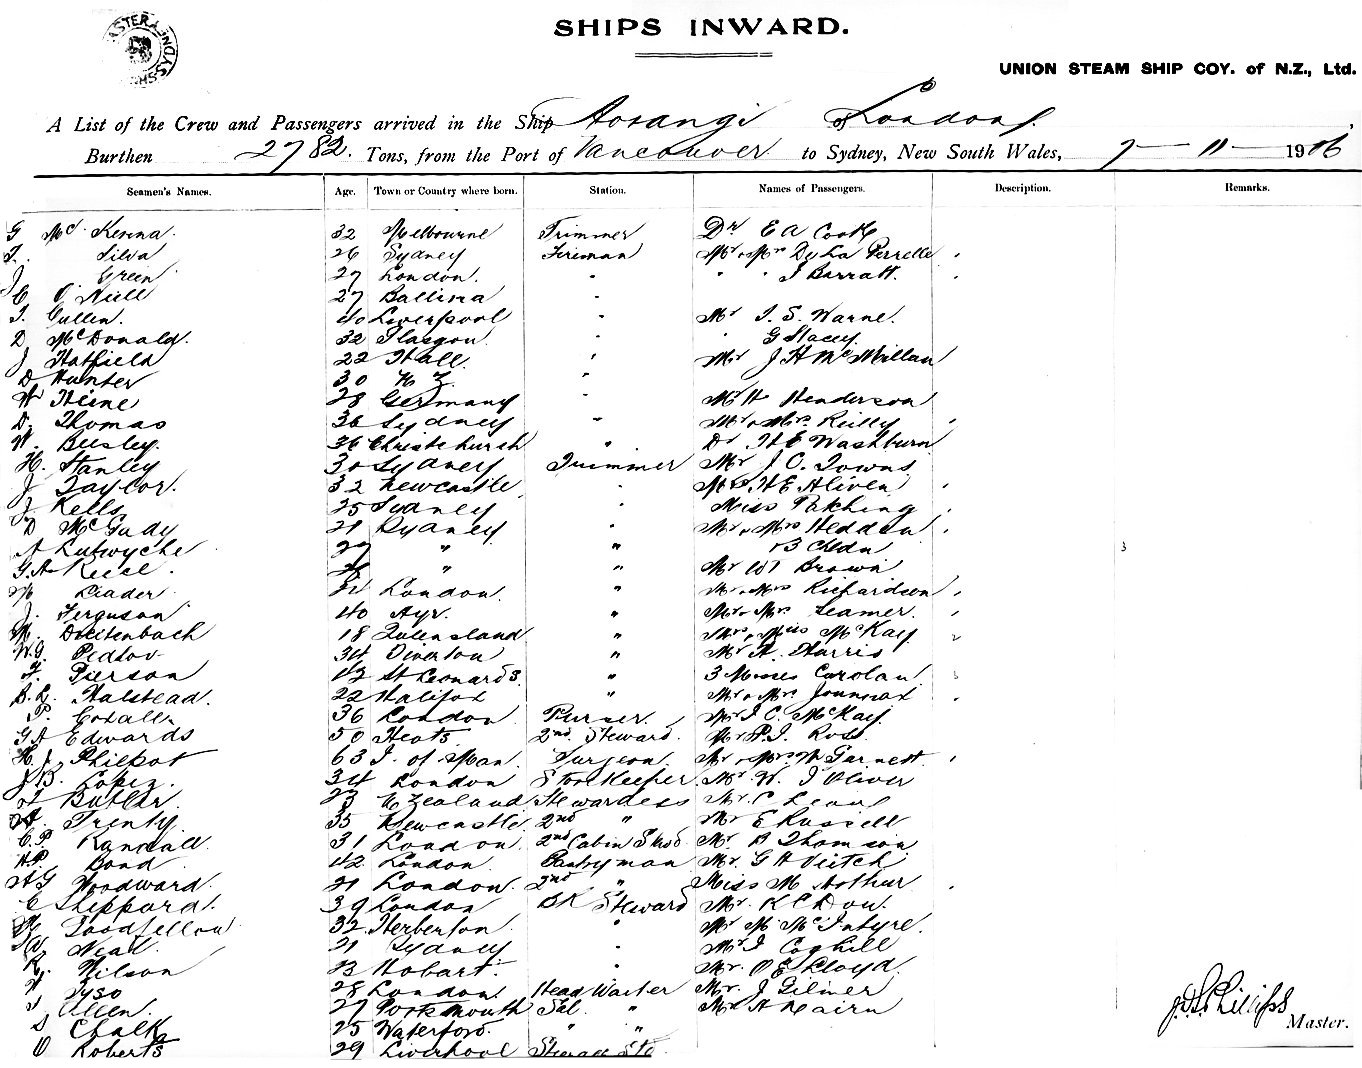 SHIPS INWARD.
UNION STEAM SHIP COY. of N.Z., Ltd.
A List of the Crew and Passengers arrived in the Ship Aorangi of London,
Burthen 2782. Tons, from the Port of Vancouver to Sydney, New South Wales, 7 – 11 – 1906
Seamen's Names. Age. Town or Country where born. Station. Names of Passengers. Description. Remarks.
G Mc Kenna. 32 Melbourne Trimmer Dr E A Cook
T. Silva 26 Sydney Fireman Mr & Mrs De La Perrelle
J Green 27 London. " " " J Barratt.
C O'Niell 27 Ballina "
T. Cullen. 40 Liverpool " Mr T. S. Warne.
D McDonald. 32 Glasgow " " G Stacey.
J Hatfield 22 Hull " Mr J H McMillan
D Hunter 30 N Z. "
W Heine 28 Germany " Mr H Henderson
D. Thomas 36 Sydney " Mr & Mrs Reilly
W. Beesley. 36 Christchurch " Dr H E Washburn
H. Stanley 30 Sydney Trimmer Mr J. O. Towns
J Taylor. 32 Newcastle " Mrs H E Aliven
J Kells 25 Sydney " Miss
D McGudy 21 Sydney " Mr & Mrs Heddon
A Lutwyche 27 " " & 3 Chldn 3
G. A. Reece. " " Mr W Brown
Leader 31 London. " Mr & Mrs Richardson
J. Ferguson 40 Ayr. " Mr & Mrs Leamer.
M. Breitenbach 18 Queensland " Mrs & Miss McKay 2
W. G. Pedlar 34 Oiverton " Mr A. Harris
F. Pierson 42 St Leonards. " 3 Misses Carolan 3
B. L. Halstead. 22 Halifax " Mr & Mrs
P. Coxall 36 London Purser. Mr J C. McKay
G A Edwards 50 2nd Steward. Mr P. J. Ross
H. J. Philpot 63 I. of Man. Surgeon. Mr & Mrs W Garnett
J B. Lopez. 34 London Storekeeper. Mr W. J Oliver
Butler 23 N Zealand Stewardess Mr C
Trenty. 35 Newcastle. 2nd " Mr E Russell
C. P. Randall 31 London. 2nd Cabin Stwd. Mr A Thomson
H P Bond 42 London. Pantryman Mr. G H Veitch
A G Woodward. 21 London. 2nd " Miss M Arthur
C Sheppard. 39 London BR Steward Mr. K C Dow.
Goodfellow 32 Herberton. " Mr M McIntyre.
Neal 21 Sydney " Mr J Coghill
R. Wilson 23 Hobart. " Mr. O E Lloyd.
W Tyso 28 London. Head Waiter Mr. J Gilmer
T Allen. 27 Portsmouth Sal. " Mr A Nairn
S Chalk 25 Waterford. " "
O Roberts 29 Liverpool Steerage Std
J. D. S. Phillips
Master.